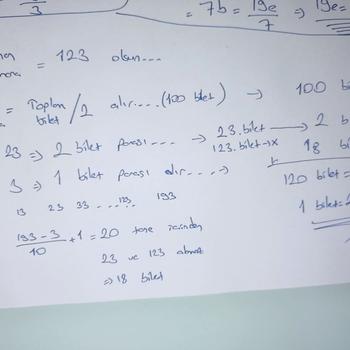 3
= 7b = 19e/7 ⇒ 19e =
= 123 olsun...
= Toplam bilet /2 alır....(100 bilet) → 100 bi
23 ⇒ 2 bilet parası... → 23.bilet → 2 b
123.bilet→x 18 bi
3 ⇒ 1 bilet parası alır....→
120 bilet=
13 23 33 ..... 123 193
1 bilet=
193-3/10 +1 = 20 tane
23 ve 123
⇒ 18 bilet